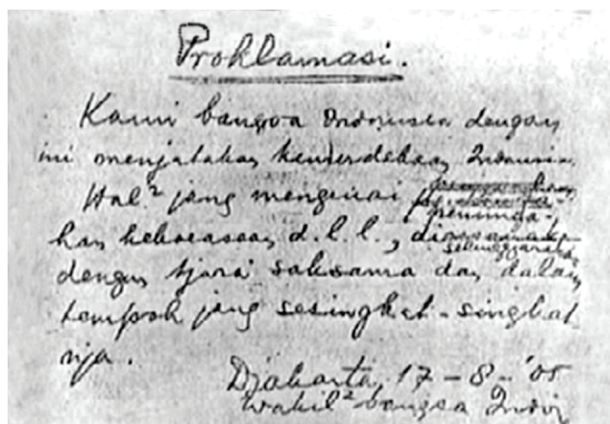 Proklamasi.
Kami bangsa Indonesia dengan
ini menjatakan kemerdekaan Indonesia.
Hal² jang mengenai
peminda-
han kekoeasaan d.l.l., di
selenggarakan
dengan tjara saksama dan dalam
tempoh jang sesingkat-singkat
nja.
Djakarta, 17-8-'05
Wakil² bangsa Indon